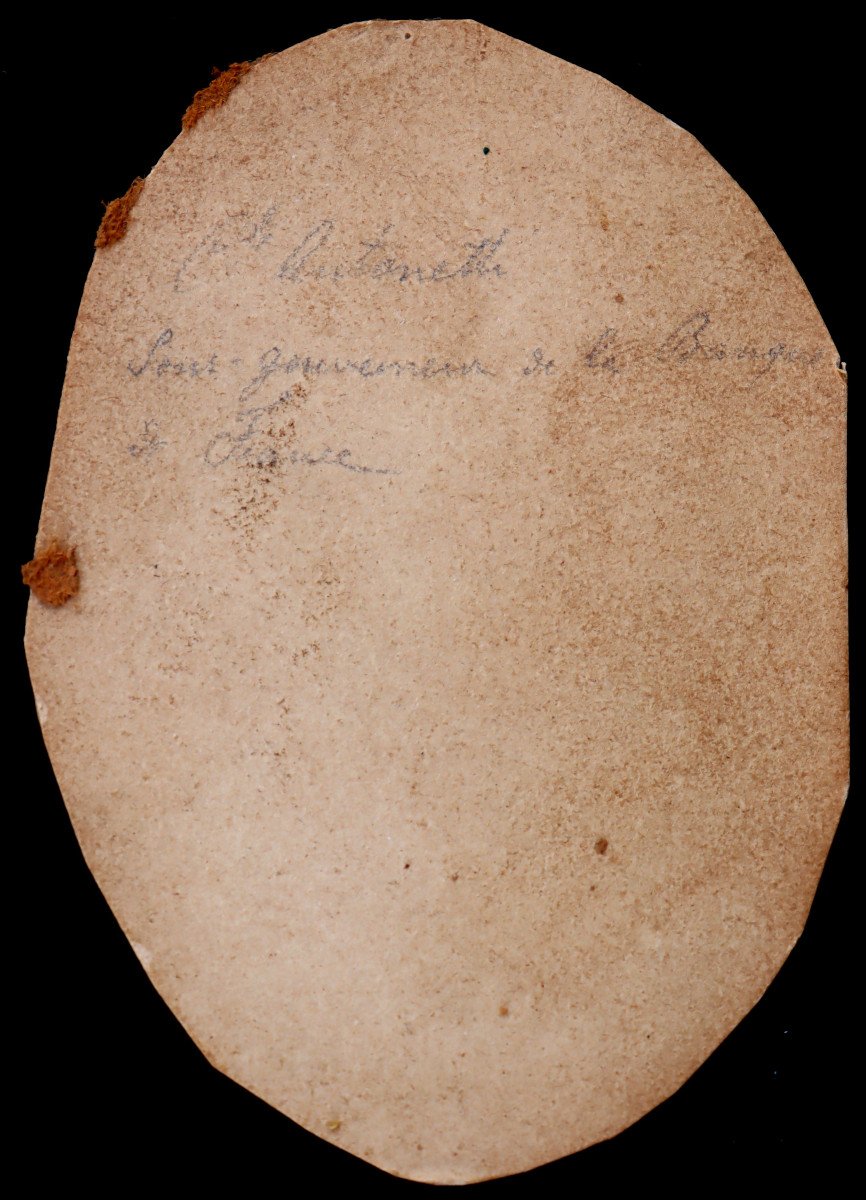 Cte Antonetti
Sous-gouverneur de la Banque
de France